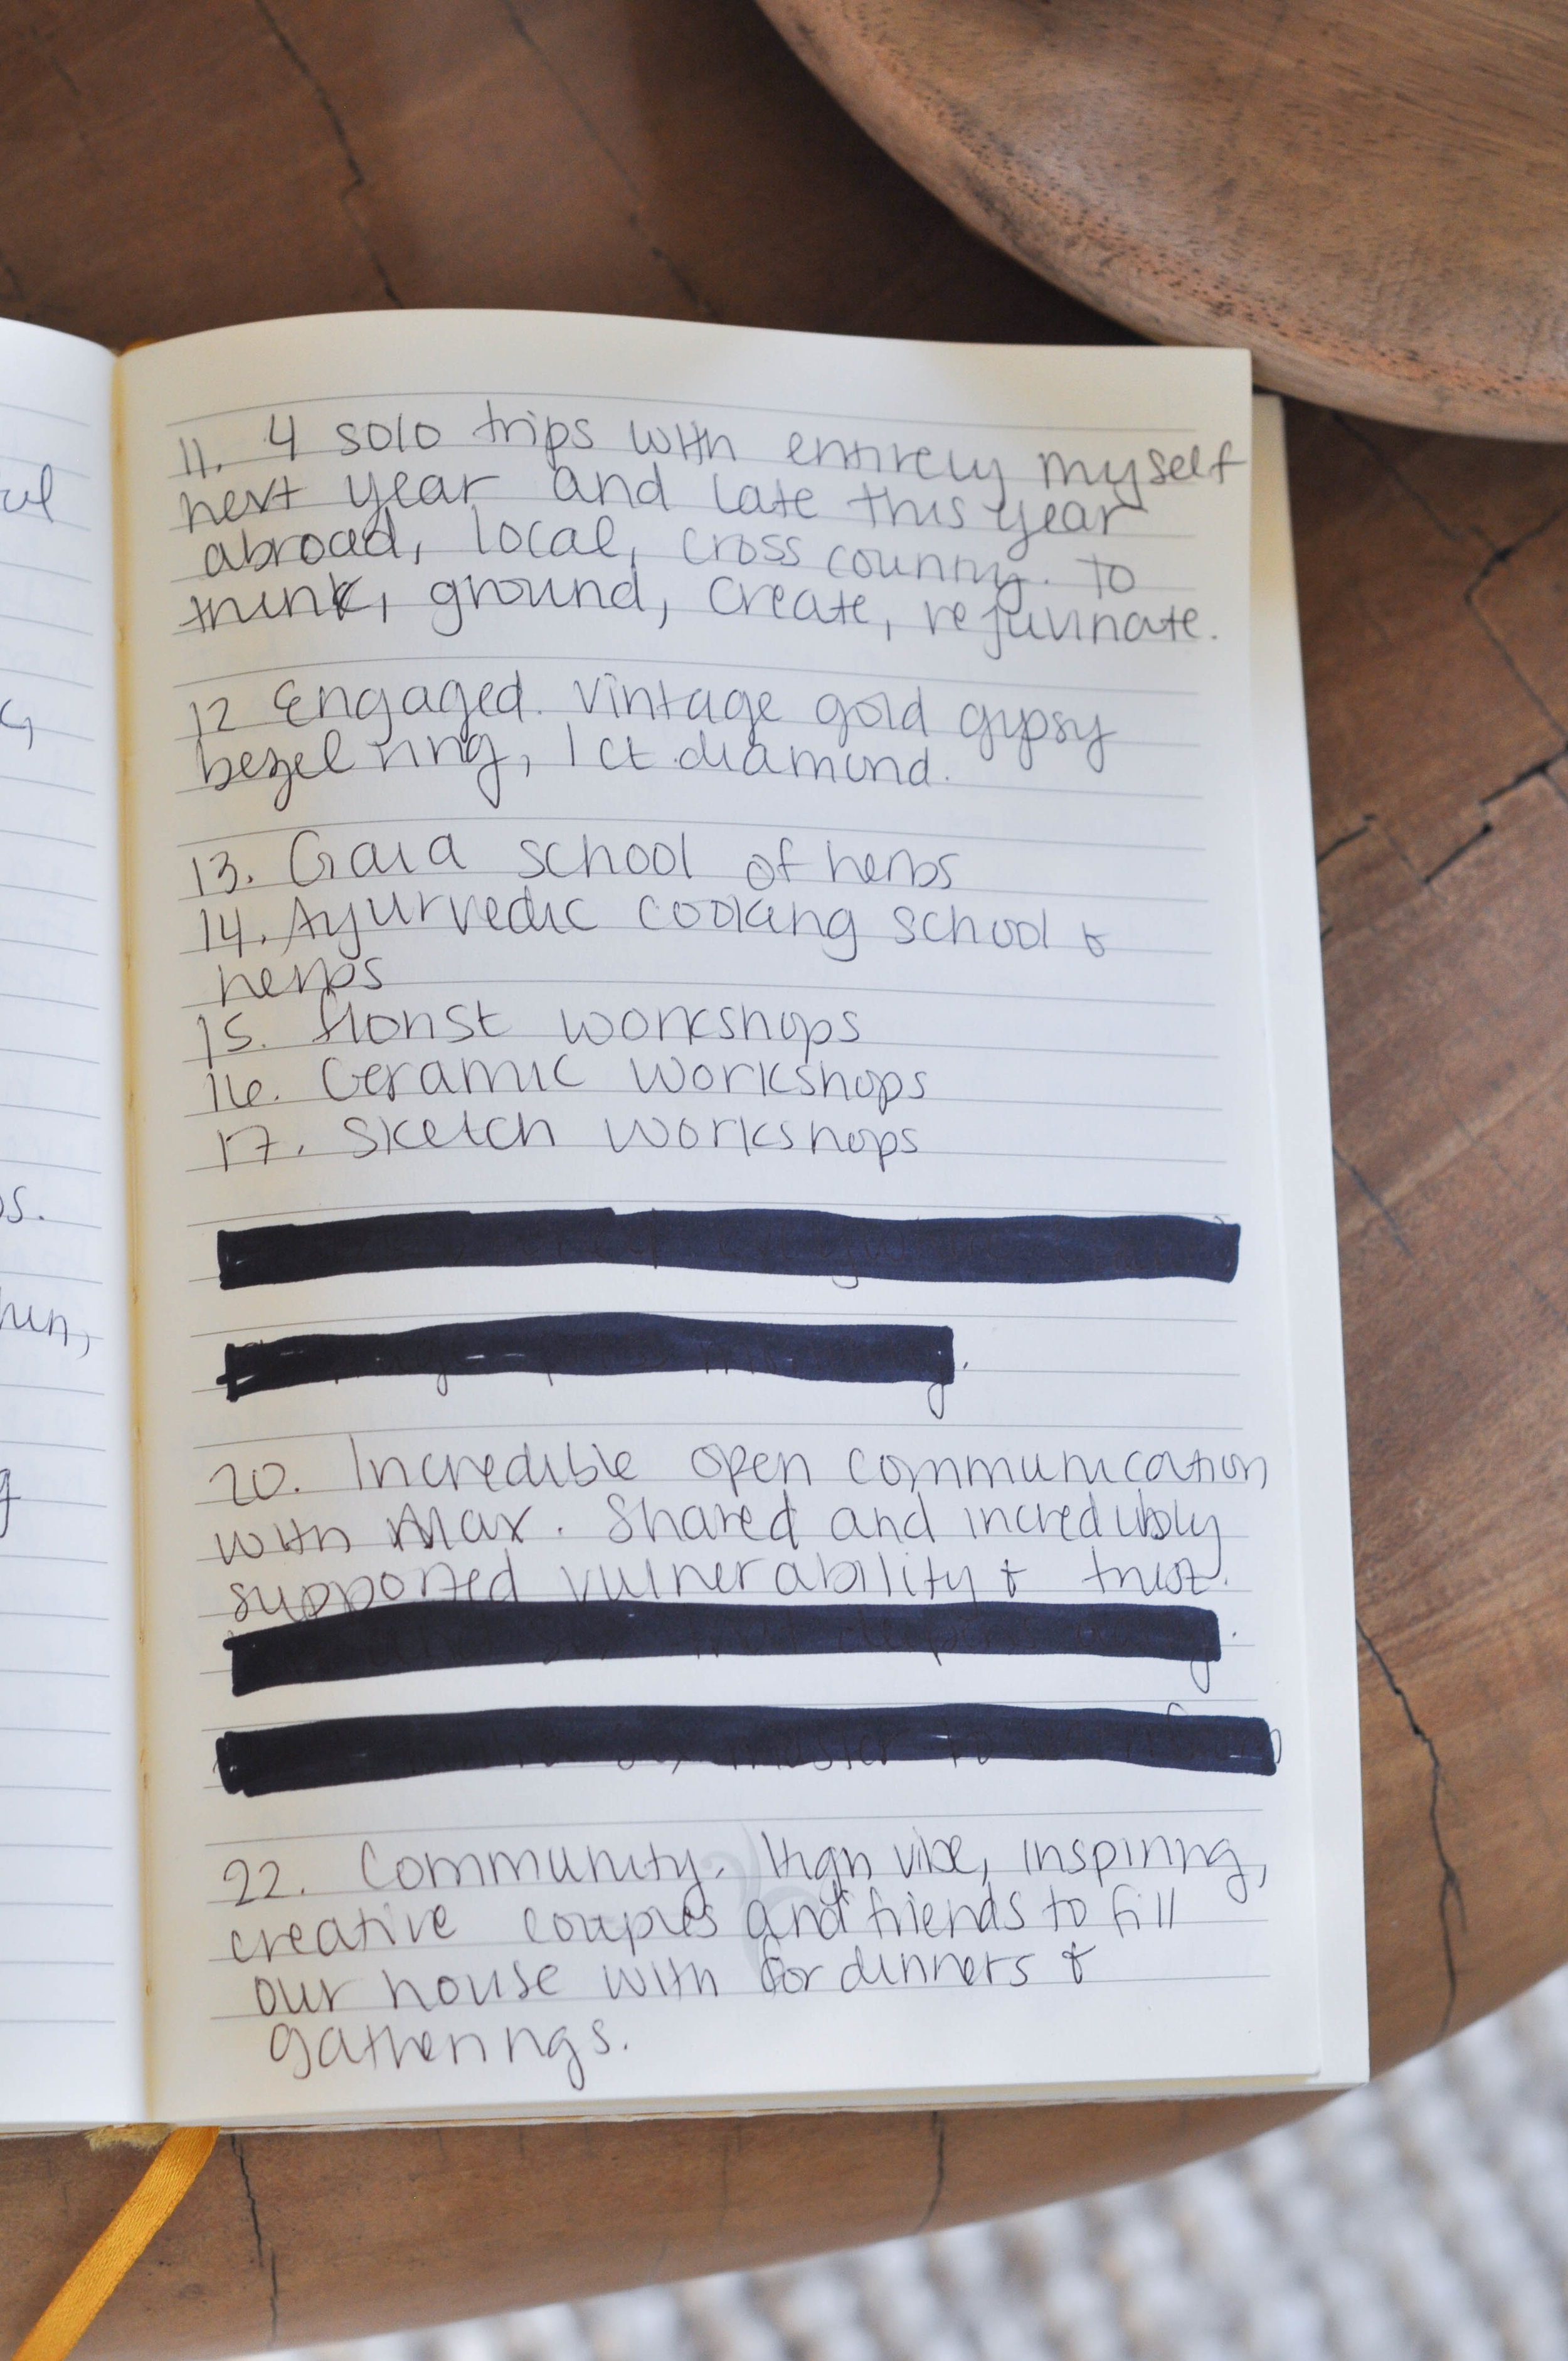 11. 4 solo trips with entirely myself
next year and late this year
abroad, local, cross country. To
think, ground, create, rejuvinate.
12 Engaged. Vintage gold gypsy
bezel ring, 1 ct diamond.
13. Gaia school of herbs
14. Ayurvedic cooking school &
herbs
15. florist workshops
16. Ceramic workshops
17. Sketch workshops
20. Incredible open communication
with Max. Shared and incredibly
supported vulnerability & trust.
22. Community. High vibe, inspiring,
creative couples and friends to fill
our house with for dinners &
gatherings.